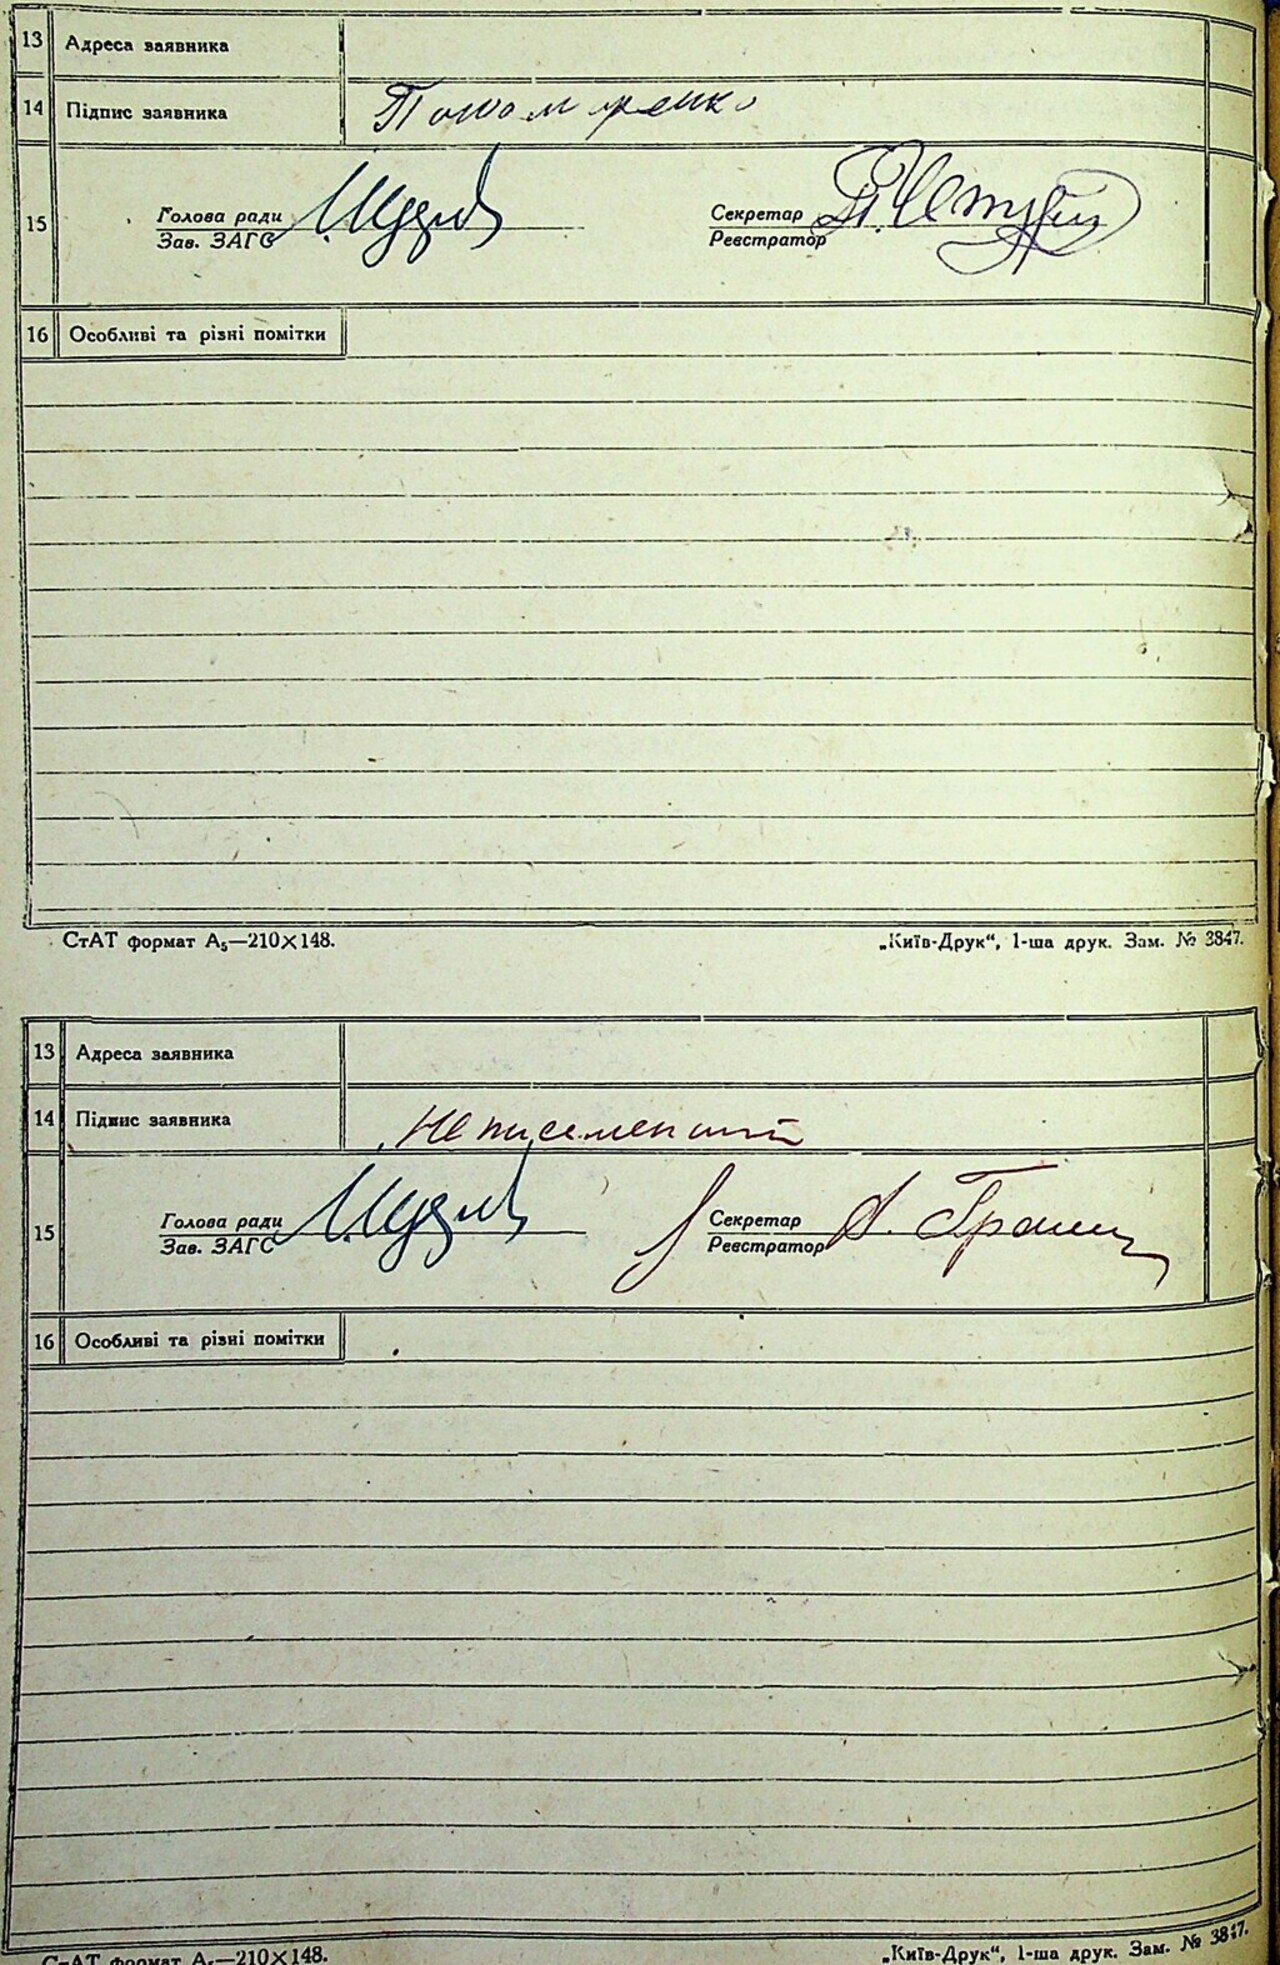 13 Адреса заявника
14 Підпис заявника Пономаренко
15 Голова ради Секретар
Зав. ЗАГС Реєстратор
16 Особливі та різні помітки
СтАТ формат А₅—210×148. „Київ-Друк“, 1-ша друк. Зам. № 3847.
13 Адреса заявника
14 Підпис заявника Неписеменний
15 Голова ради Секретар
Зав. ЗАГС Реєстратор
16 Особливі та різні помітки
СтАТ формат А₅—210×148. „Київ-Друк“, 1-ша друк. Зам. № 3847.